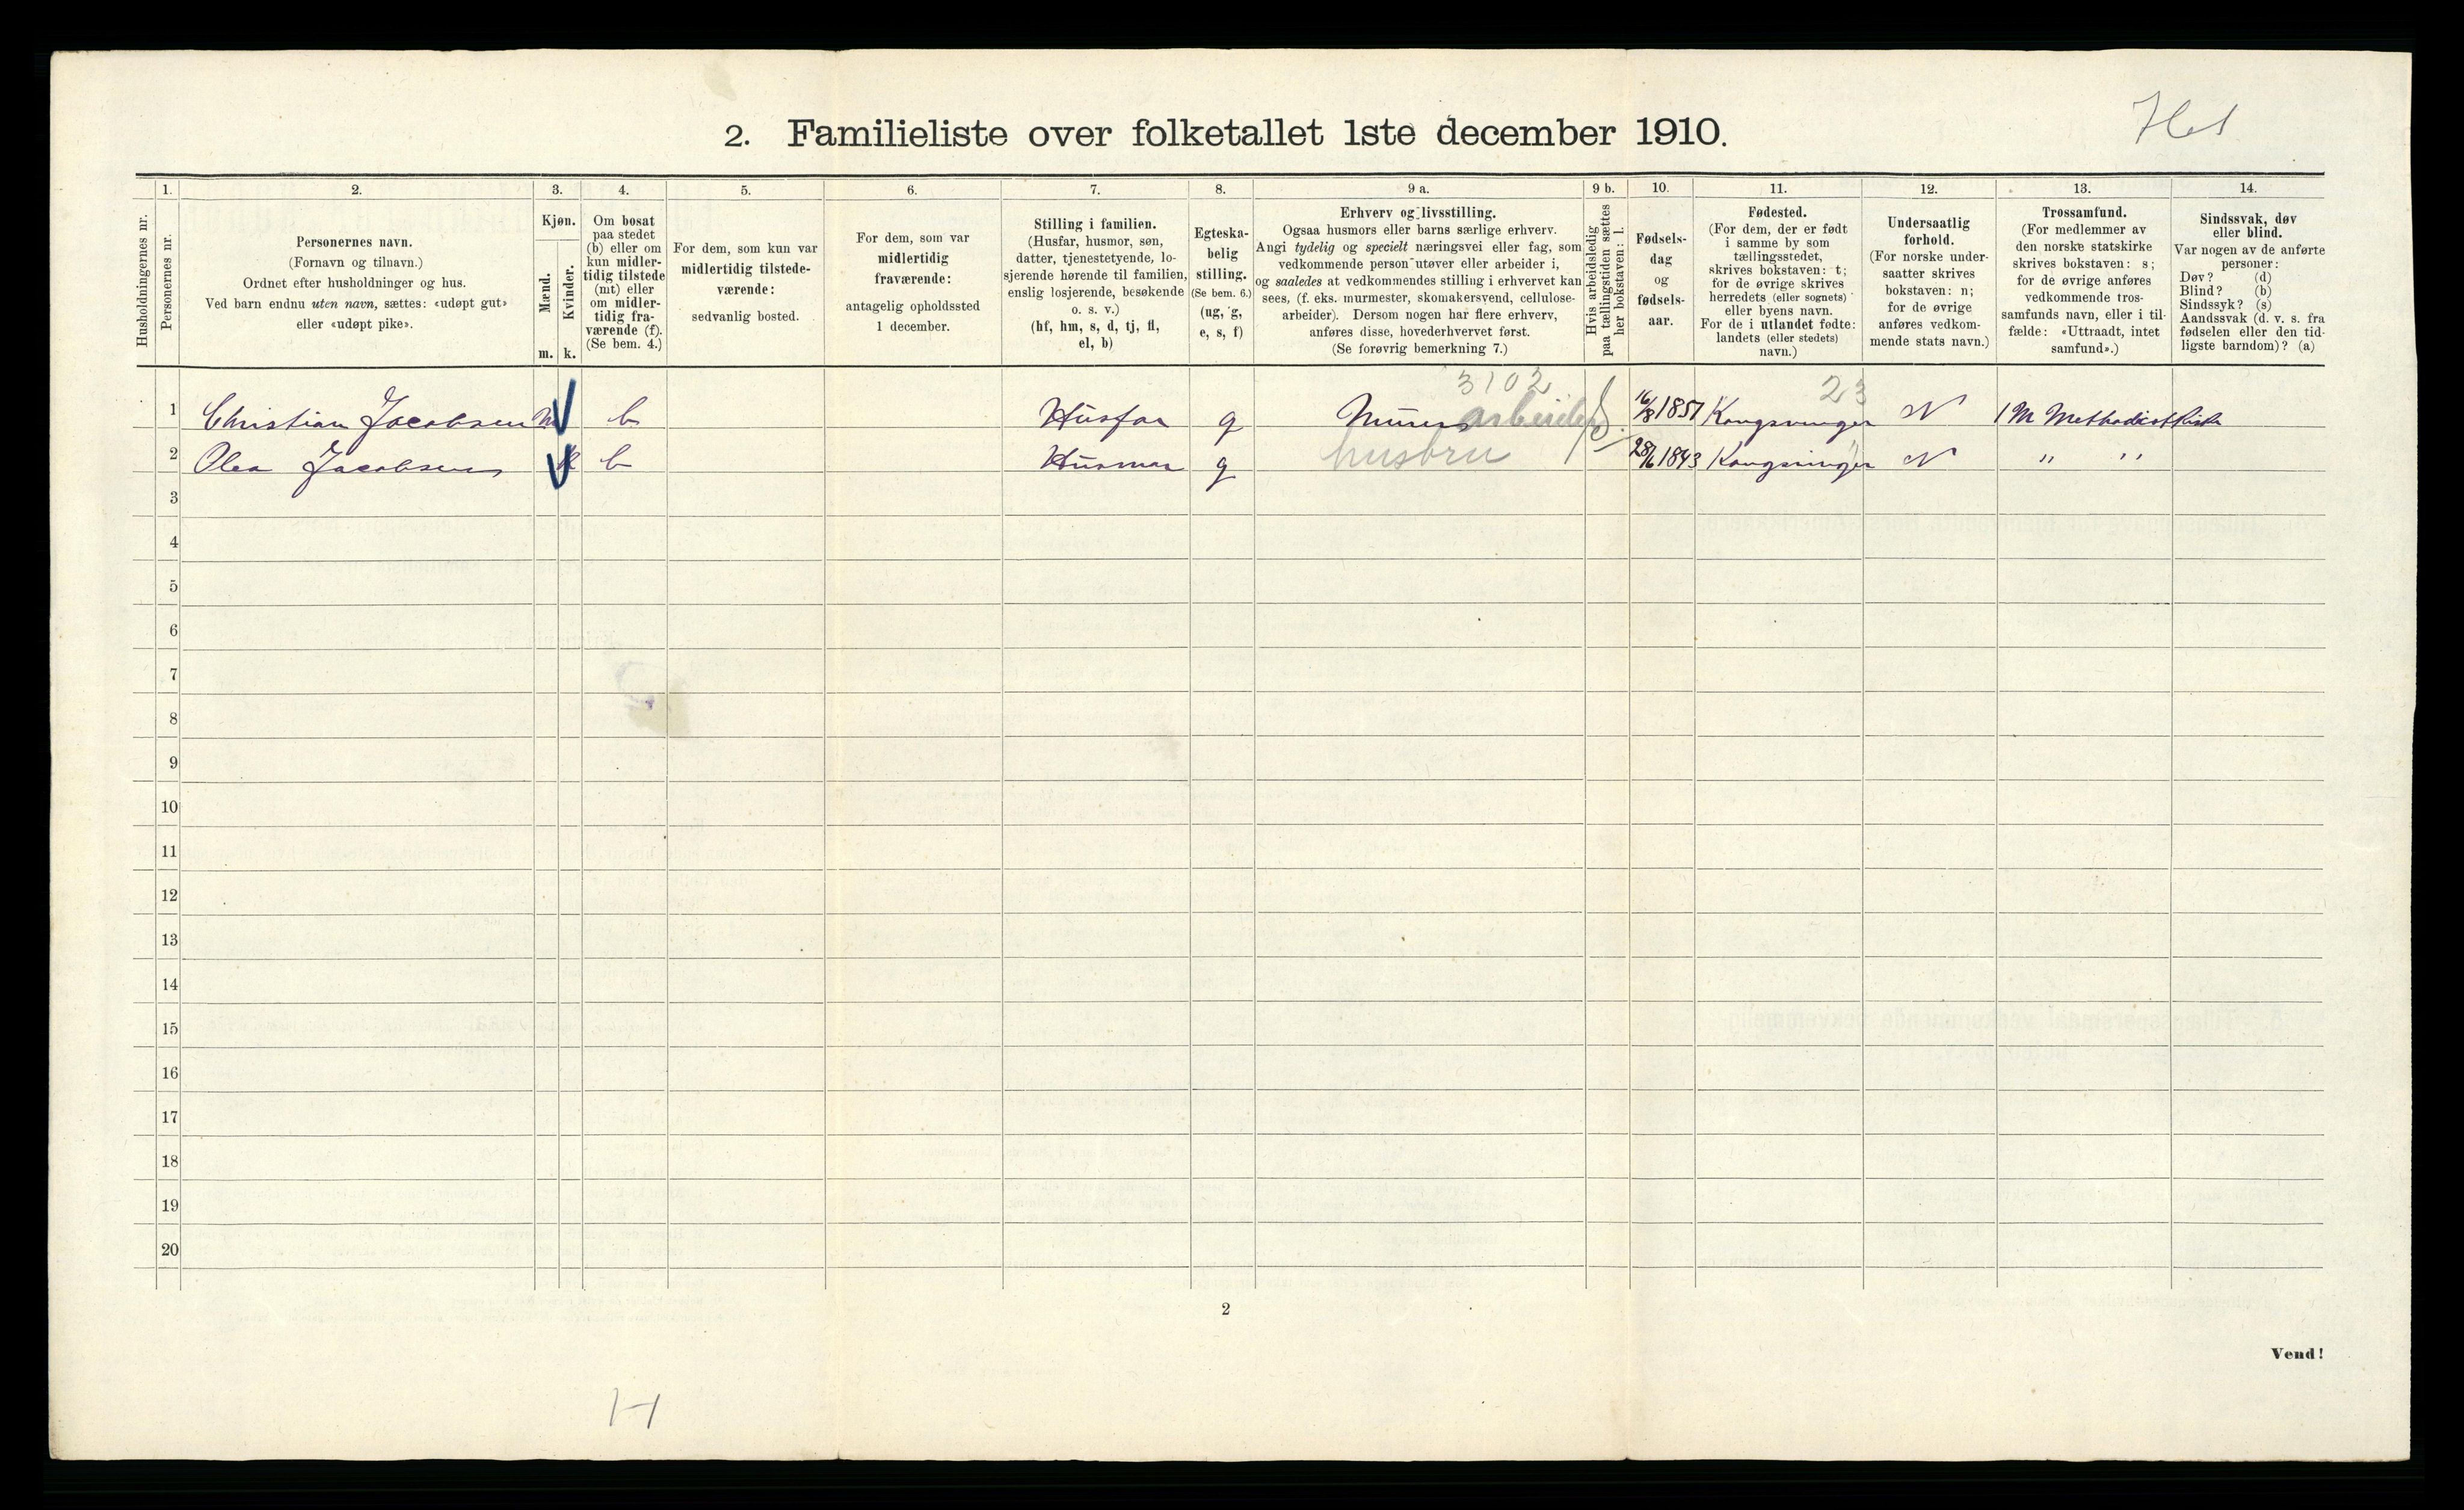 2. Familieliste over folketallet 1ste december 1910.
Husholdningernes nr.
1.
Personernes nr.
2.
Personernes navn.
(Fornavn og tilnavn.)
Ordnet efter husholdninger og hus.
Ved barn endnu uten navn, sættes: «udøpt gut»
eller «udøpt pike».
3.
Kjøn.
Mænd.
Kvinder.
m. k.
4.
Om bosat
paa stedet
(b) eller om
kun midler-
tidig tilstede
(mt) eller
om midler-
tidig fra-
værende (f).
(Se bem. 4.)
5.
For dem, som kun var
midlertidig tilstede-
værende:
sedvanlig bosted.
6.
For dem, som var
midlertidig
fraværende:
antagelig opholdssted
1 december.
7.
Stilling i familien.
(Husfar, husmor, søn,
datter, tjenestetyende, lo-
sjerende hørende til familien,
enslig losjerende, besøkende
o. s. v.)
(hf, hm, s, d, tj, fl,
el, b)
8.
Egteska-
belig
stilling.
(Se bem. 6.)
(ug, g,
e, s, f)
9 a.
Erhverv og livsstilling.
Ogsaa husmors eller barns særlige erhverv.
Angi tydelig og specielt næringsvei eller fag, som
vedkommende person utøver eller arbeider i,
og saaledes at vedkommendes stilling i erhvervet kan
sees, (f. eks. murmester, skomakersvend, cellulose-
arbeider). Dersom nogen har flere erhverv,
anføres disse, hovederhvervet først.
(Se forøvrig bemerkning 7.)
9 b.
Hvis arbeidsledig
paa tællingstiden sættes
her bokstaven: l.
10.
Fødsels-
dag
og
fødsels-
aar.
11.
Fødested.
(For dem, der er født
i samme by som
tællingsstedet,
skrives bokstaven: t;
for de øvrige skrives
herredets (eller sognets)
eller byens navn.
For de i utlandet fødte:
landets (eller stedets)
navn.)
12.
Undersaatlig
forhold.
(For norske under-
saatter skrives
bokstaven: n;
for de øvrige
anføres vedkom-
mende stats navn.)
13.
Trossamfund.
(For medlemmer av
den norske statskirke
skrives bokstaven: s;
for de øvrige anføres
vedkommende tros-
samfunds navn, eller i til-
fælde: «Uttraadt, intet
samfund».)
14.
Sindssvak, døv
eller blind.
Var nogen av de anførte
personer:
Døv? (d)
Blind? (b)
Sindssyk? (s)
Aandssvak (d. v. s. fra
fødselen eller den tid-
ligste barndom)? (a)
3102 23
1 Christian Jacobsen M b Husfar g Murerarbeider 16/8 1851 Kongsvinger N 1 M Methodistkirke
2 Olea Jacobsen k b Husmor g husbru 28/6 1843 Kongsvinger N " "
3
4
5
6
7
8
9
10
11
12
13
14
15
16
17
18
19
20
2
Vend!
H